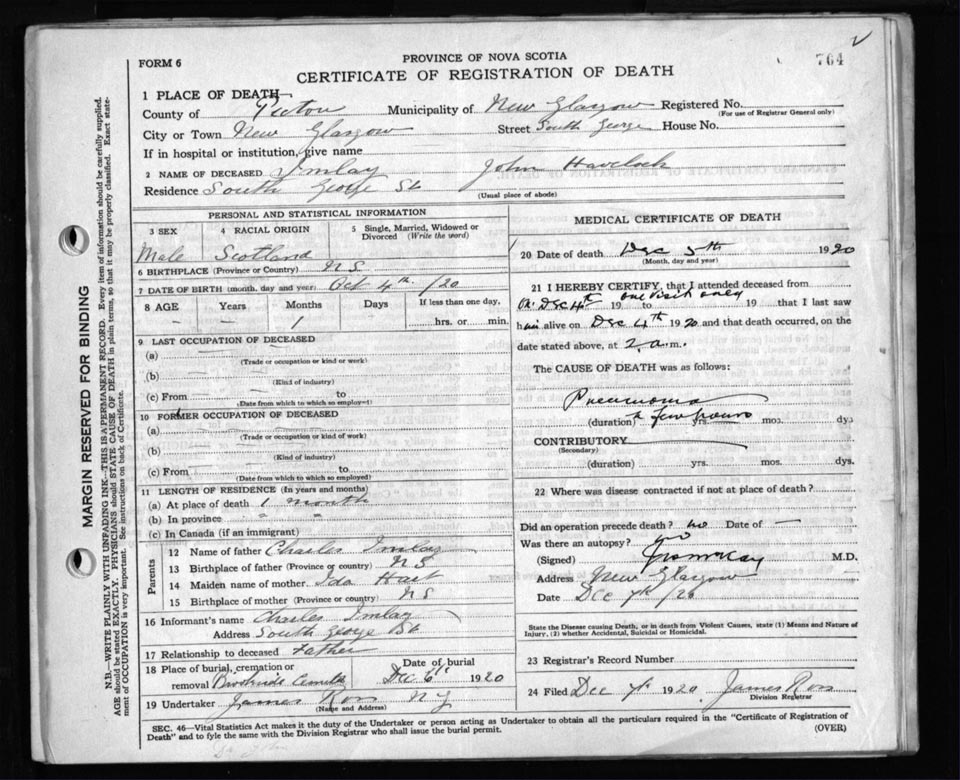 764
PROVINCE OF NOVA SCOTIA
FORM 6
CERTIFICATE OF REGISTRATION OF DEATH
1 PLACE OF DEATH—
County of Pictou Municipality of New Glasgow Registered No.
(For use of Registrar General only)
City or Town New Glasgow Street South George House No.
If in hospital or institution, give name
2 NAME OF DECEASED Imlay John Havelock
Residence South George St
(Usual place of abode)
PERSONAL AND STATISTICAL INFORMATION
3 SEX 4 RACIAL ORIGIN 5 Single, Married, Widowed or Divorced (Write the word)
Male Scotland
6 BIRTHPLACE (Province or Country) N.S.
7 DATE OF BIRTH (month, day and year) Oct 4th /20
8 AGE Years Months Days If less than one day,
— — 1 hrs. or min.
9 LAST OCCUPATION OF DECEASED
(a)
(Trade or occupation or kind of work)
(b)
(Kind of industry)
(c) From to
(Date from which to which so employed)
10 FORMER OCCUPATION OF DECEASED
(a)
(Trade or occupation or kind of work)
(b)
(Kind of industry)
(c) From to
(Date from which to which so employed)
11 LENGTH OF RESIDENCE (In years and months)
(a) At place of death 1 month
(b) In province " "
(c) In Canada (if an immigrant)
Parents
12 Name of father Charles Imlay
13 Birthplace of father (Province or country) N S
14 Maiden name of mother Ida Hart
15 Birthplace of mother (Province or country) N S
16 Informant's name Charles Imlay
Address South George St
17 Relationship to deceased Father
18 Place of burial, cremation or Date of burial
removal Dec 6th 1920
19 Undertaker James Ross N G
(Name and Address)
MEDICAL CERTIFICATE OF DEATH
20 Date of death Dec 5th 1920
(Month, day and year)
21 I HEREBY CERTIFY, that I attended deceased from
on Dec 4th 19 one visit only to 19 that I last saw
him alive on Dec 4th 1920 and that death occurred, on the
date stated above, at 2 a.m.
The CAUSE OF DEATH was as follows:
Pneumonia
(duration) few hours yrs. mos. dys.
CONTRIBUTORY
(Secondary)
(duration) yrs. mos. dys.
22 Where was disease contracted if not at place of death?
Did an operation precede death? no Date of —
Was there an autopsy? no
(Signed) M.D.
Address New Glasgow
Date Dec 7th /20
State the Disease causing Death, or in death from Violent Causes, state (1) Means and Nature of
Injury, (2) whether Accidental, Suicidal or Homicidal.
23 Registrar's Record Number
24 Filed Dec 7th 1920 James Ross
Division Registrar
SEC. 46—Vital Statistics Act makes it the duty of the Undertaker or person acting as Undertaker to obtain all the particulars required in the "Certificate of Registration of
Death" and to fyle the same with the Division Registrar who shall issue the burial permit. (OVER)
MARGIN RESERVED FOR BINDING
N.B.—WRITE PLAINLY WITH UNFADING INK—THIS IS A PERMANENT RECORD. Every item of information should be carefully supplied.
AGE should be stated EXACTLY. PHYSICIANS should STATE CAUSE OF DEATH in plain terms, so that it may be properly classified. Exact state-
ment of OCCUPATION is very important. See instructions on back of Certificate.